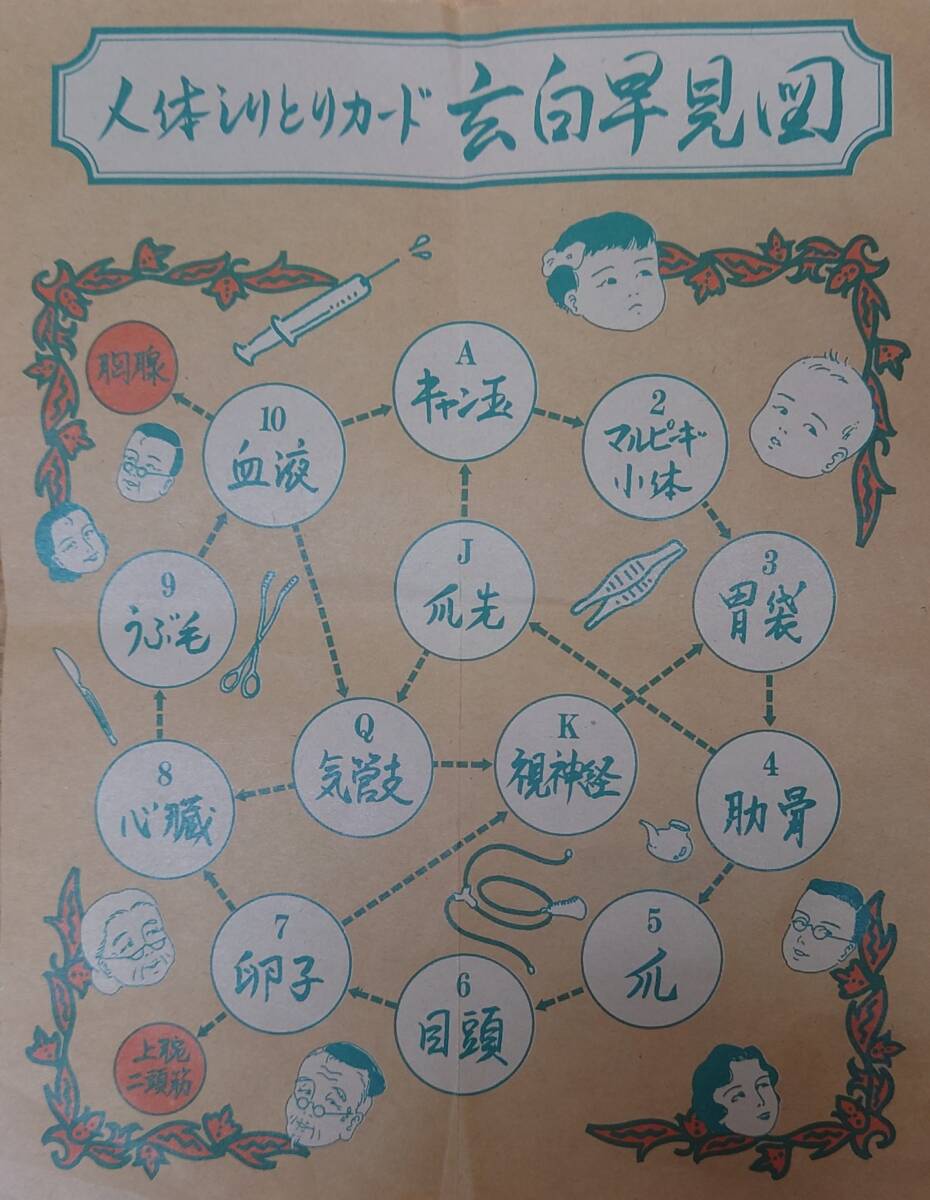 人体しりとりカード 玄白早見図
胸腺
A
キャン玉
10
血液
2
マルピーギ
小体
J
爪先
3
胃袋
9
うぶ毛
Q
気管支
K
視神経
8
心臓
4
肋骨
7
卵子
5
爪
6
目頭
上腕
二頭筋